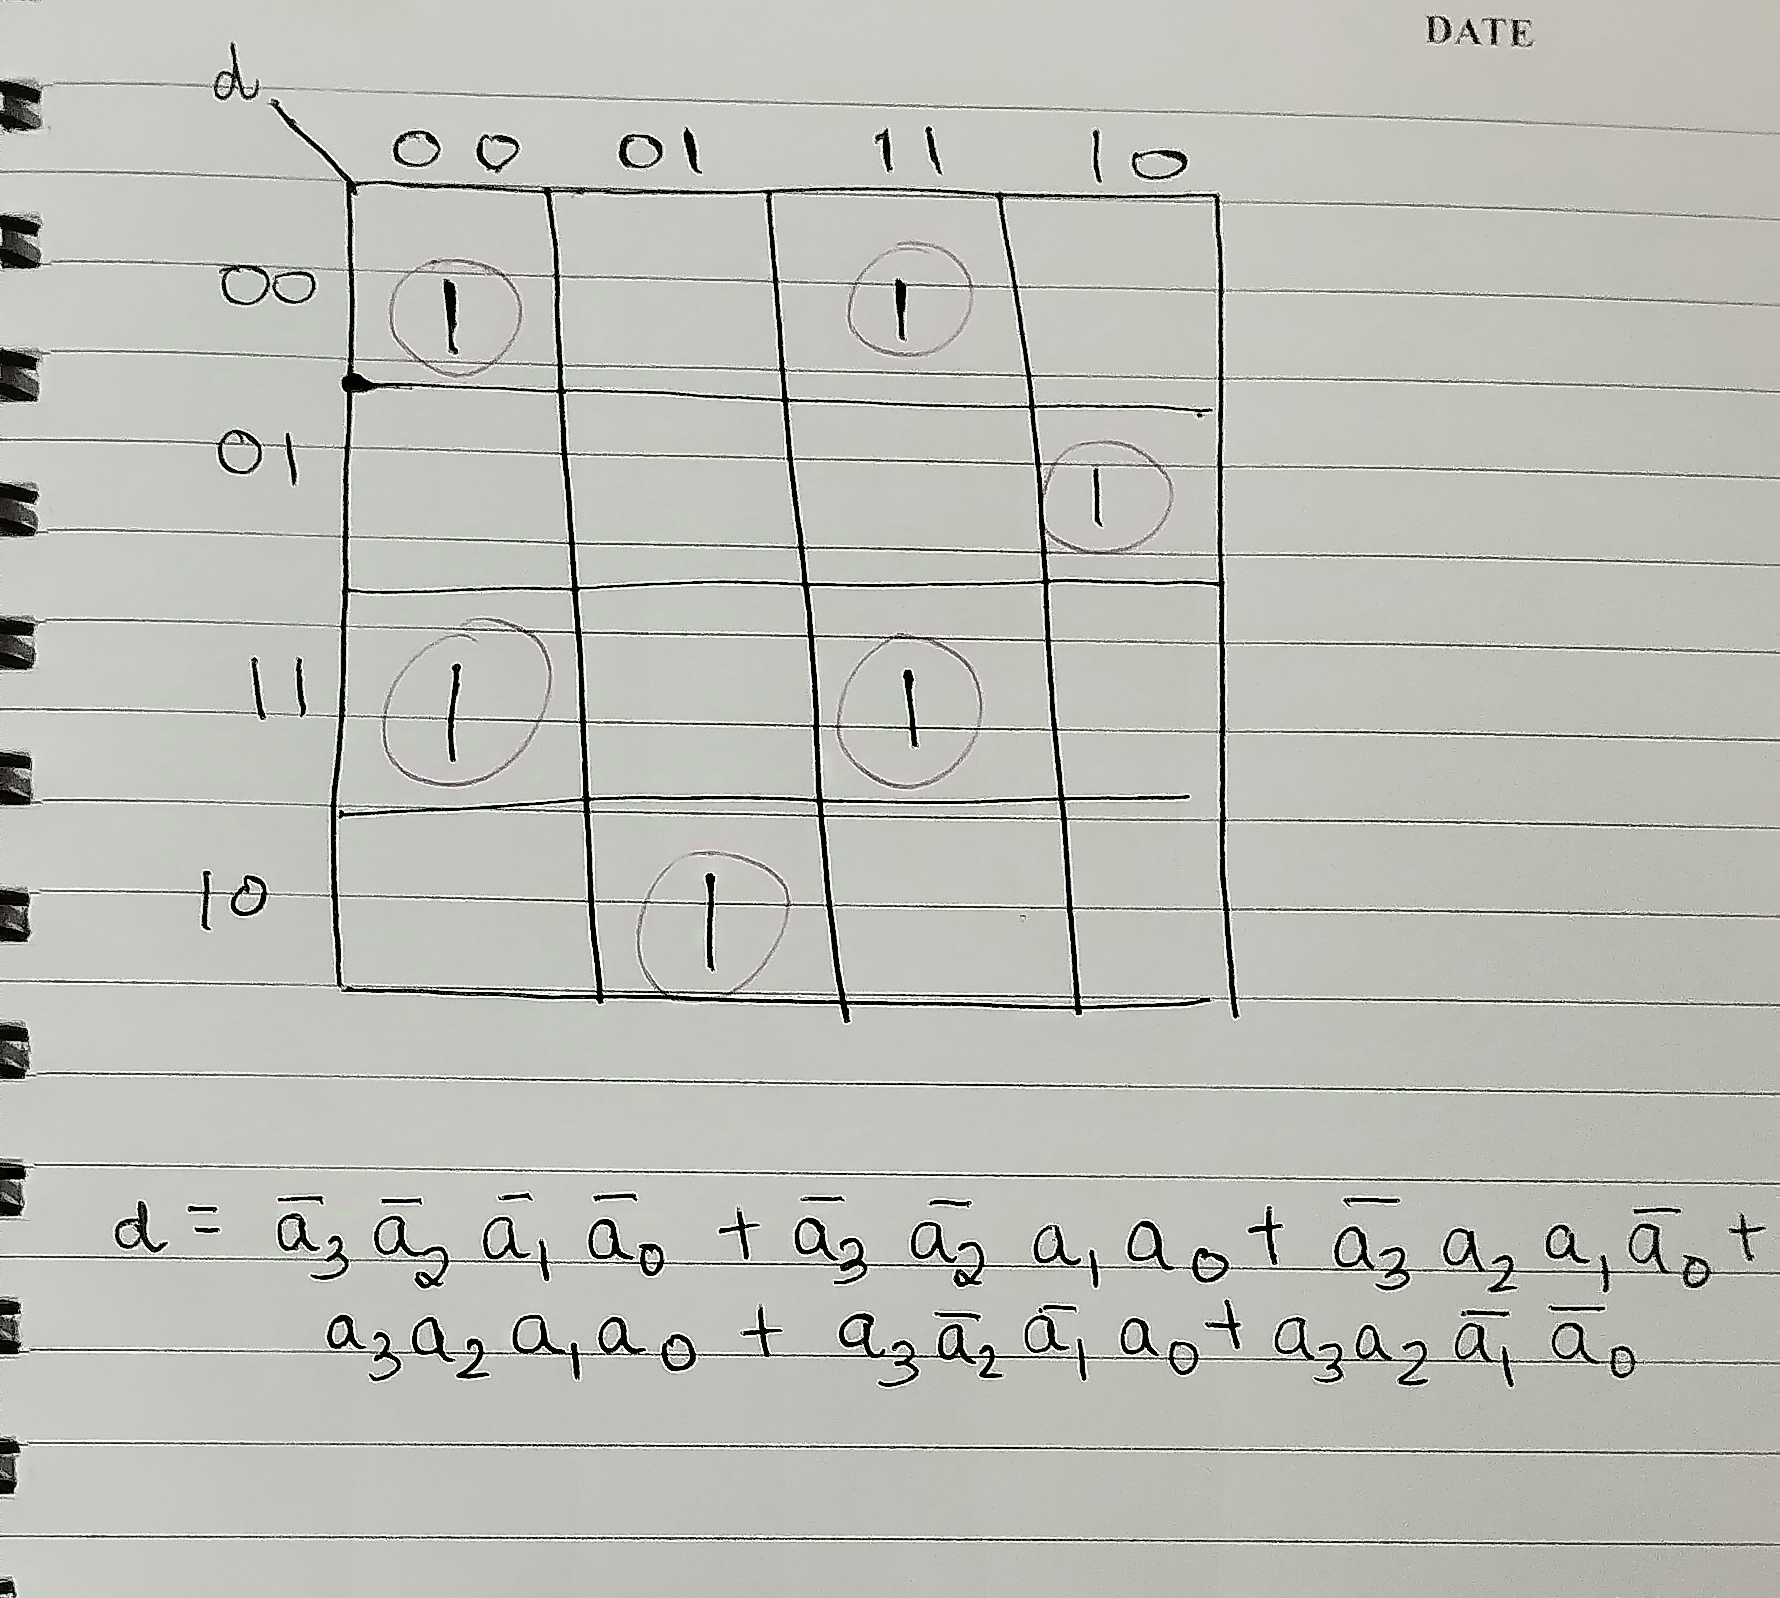 DATE
d
00 01 11 10
00 1 1
01 1
11 1 1
10 1
d = a̅₃ a̅₂ a̅₁ a̅₀ + a̅₃ a̅₂ a₁ a₀ + a̅₃ a₂ a₁ a̅₀ +
a₃ a₂ a₁ a₀ + a₃ a̅₂ a̅₁ a₀ + a₃ a₂ a̅₁ a̅₀